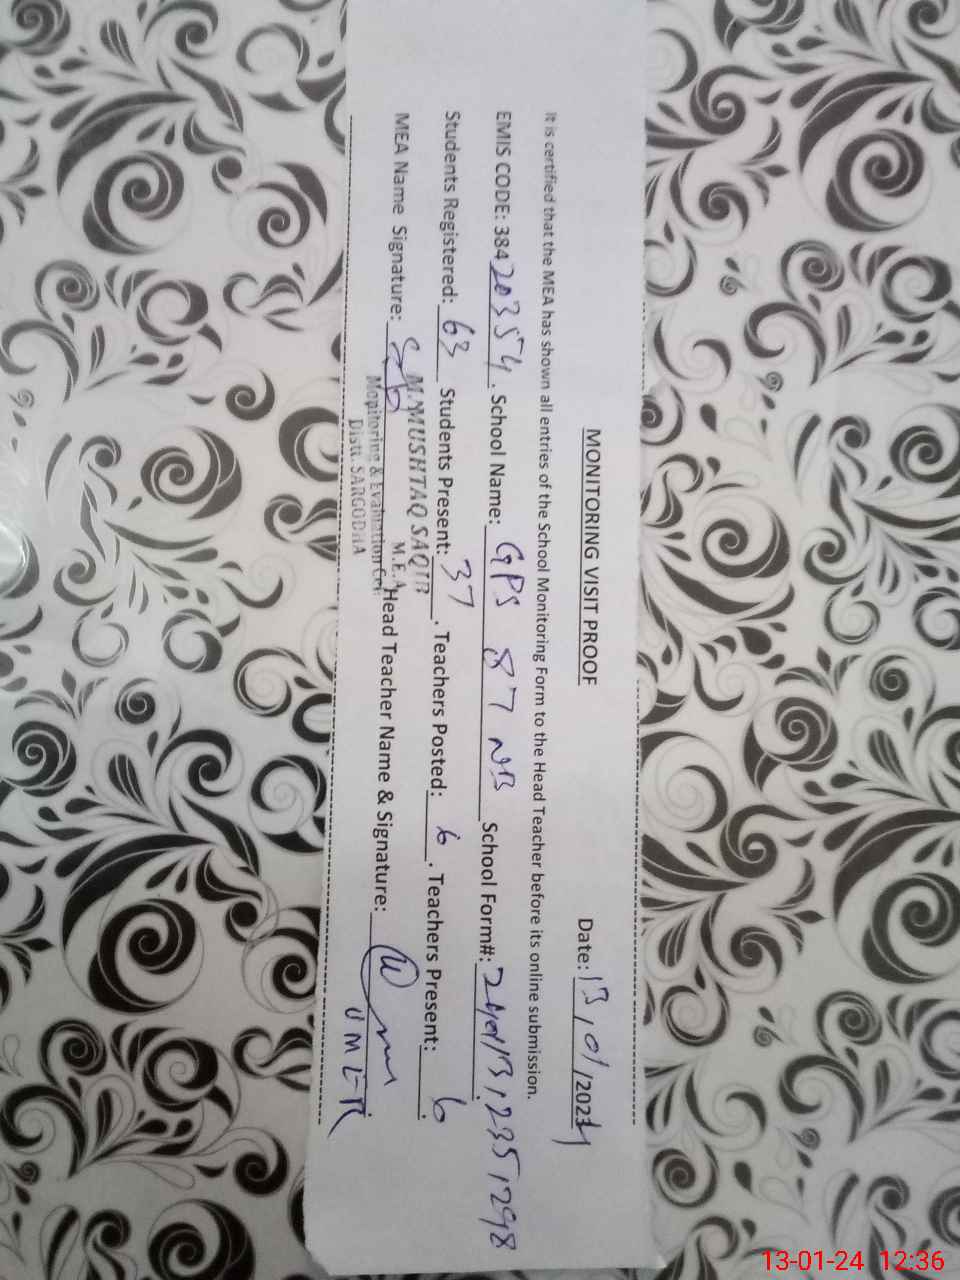 MONITORING VISIT PROOF
Date: 13/01/2024
It is certified that the MEA has shown all entries of the School Monitoring Form to the Head Teacher before its online submission.
EMIS CODE: 38420354. School Name: GPS 87 NB School Form#:
Students Registered: 63 Students Present: 37. Teachers Posted: 6. Teachers Present: 6
MEA Name Signature: Head Teacher Name & Signature:
M. MUSHTAQ SAQIB
M.E.A
Monitoring & Evaluation
Distt. SARGODHA
UMER
13-01-24 12:36